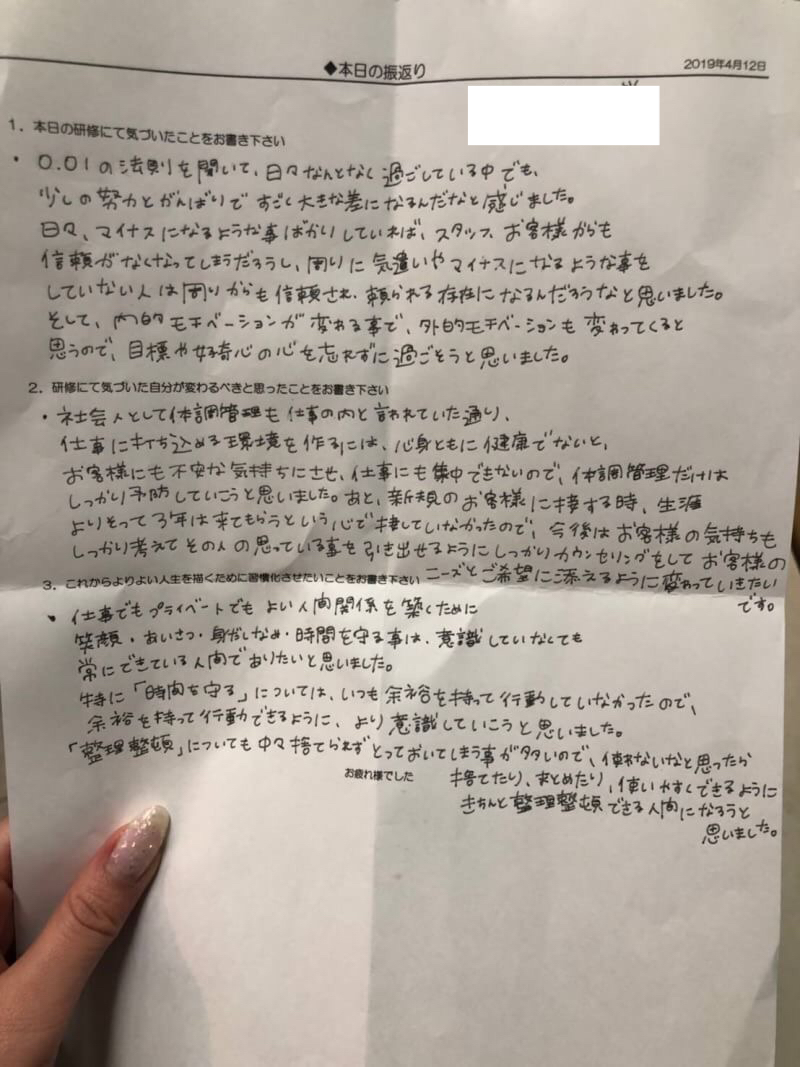 ◆本日の振返り
2019年4月12日
1. 本日の研修にて気づいたことをお書き下さい
・0.01の法則を聞いて、日々なんとなく過ごしている中でも、
少しの努力とがんばりですごく大きな差になるんだなと感じました。
日々、マイナスになるような事ばかりしていれば、スタッフ、お客様からも
信頼がなくなってしまうだろうし、周りに気遣いやマイナスになるような事を
していない人は周りからも信頼され、頼られる存在になるんだろうなと思いました。
そして、内的モチベーションが変わる事で、外的モチベーションも変わってくると
思うので、目標や好奇心の心を忘れずに過ごそうと思いました。
2. 研修にて気づいた自分が変わるべきと思ったことをお書き下さい
・社会人として体調管理も仕事の内と言われていた通り、
仕事に打ち込める環境を作るには、心身ともに健康でないと、
お客様にも不安な気持ちにさせ、仕事にも集中できないので、体調管理だけは
しっかり予防していこうと思いました。あと、新規のお客様に接する時、生涯
よりそって3年は来てもらうという心で接していなかったので、今後はお客様の気持ちも
しっかり考えてその人の思っている事を引き出せるようにしっかりカウンセリングをしてお客様の
ニーズとご希望に添えるように変わっていきたい
です。
3. これからよりよい人生を描くために習慣化させたいことをお書き下さい
・仕事でもプライベートでもよい人間関係を築くために
笑顔・あいさつ・身だしなみ・時間を守る事は、意識していなくても
常にできている人間でありたいと思いました。
特に「時間を守る」については、いつも余裕を持って行動していなかったので、
余裕を持って行動できるように、より意識していこうと思いました。
「整理整頓」についても中々捨てられずとっておいてしまう事が多いので、使わないなと思ったら
捨てたり、まとめたり、使いやすくできるように
きちんと整理整頓できる人間になろうと
思いました。
お疲れ様でした